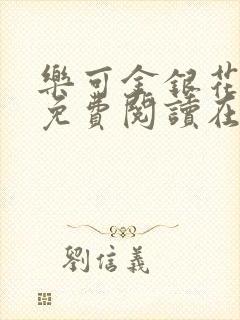 樂可金銀花
免費閱讀在
劉信義